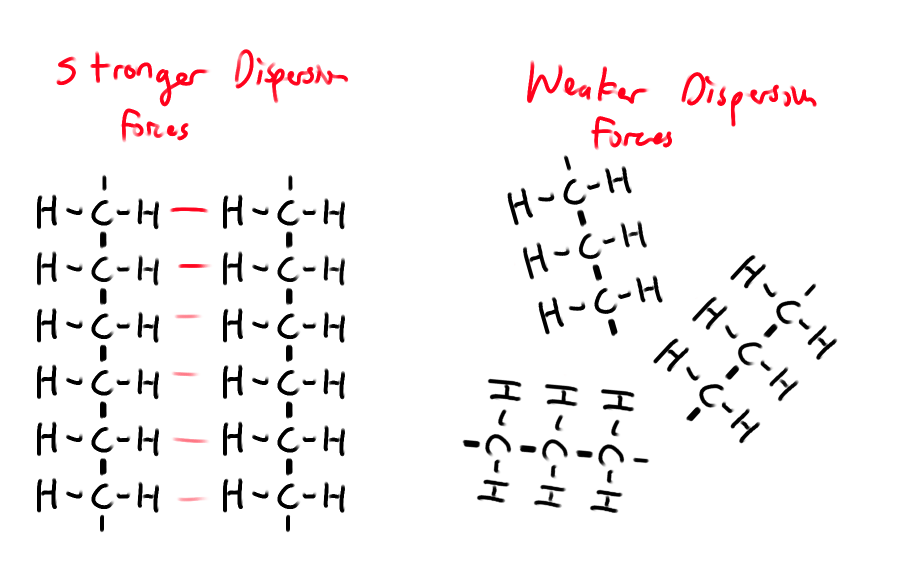 Stronger Dispersion
Forces
H-C-H — H-C-H
H-C-H — H-C-H
H-C-H — H-C-H
H-C-H — H-C-H
H-C-H — H-C-H
H-C-H — H-C-H
Weaker Dispersion
Forces
H-C-H
H-C-H
H-C-H
H-C-H
H-C-H
H-C-H
H H H
-C-C-C-
H H H